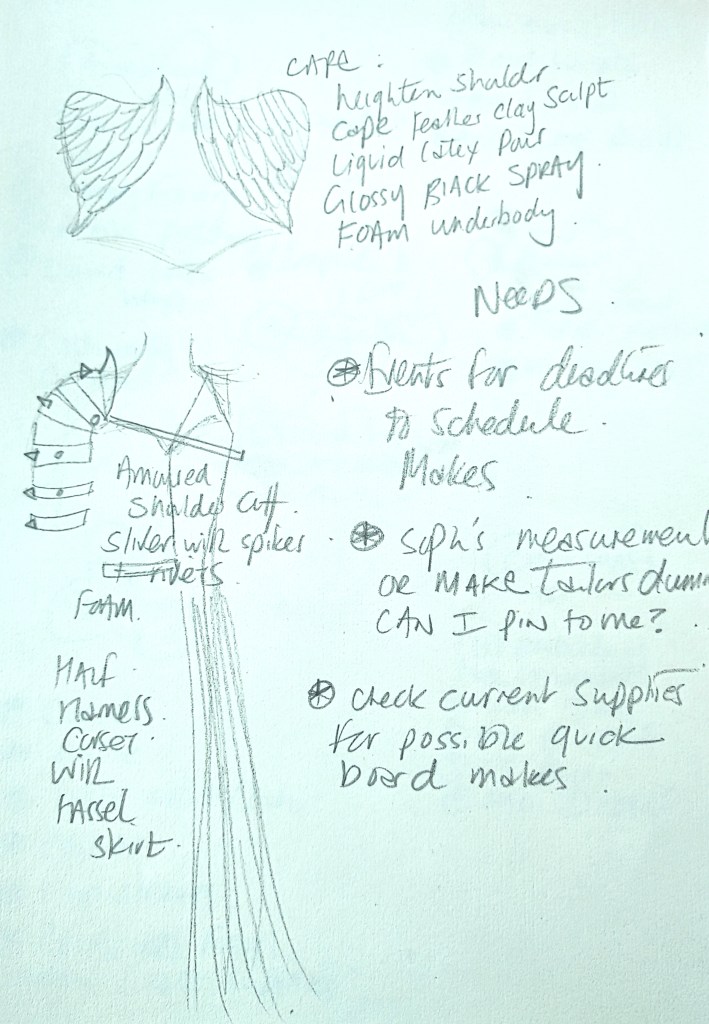 CAPE :
heighten Shouldr
Cape Feather Clay Sculpt
Liquid Latex Pour
Glossy BLACK SPRAY.
FOAM underbody.
NEEDS.
Events for deadlines
to schedule.
Makes
Soph's measurement
OR MAKE Tailors dum
CAN I pin to me?
Check current Supplies
for possible quick
board makes.
Amoured
Shoulder Cuff.
Sliver with spikes
+ rivers
FOAM.
HALF
Harness.
Corset
With
tassel
skirt.